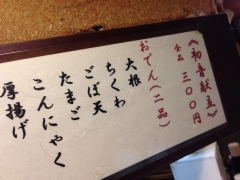 《初音献立》
全品 三〇〇円
おでん(二品)
大根
ちくわ
ごぼ天
たまご
こんにゃく
厚揚げ